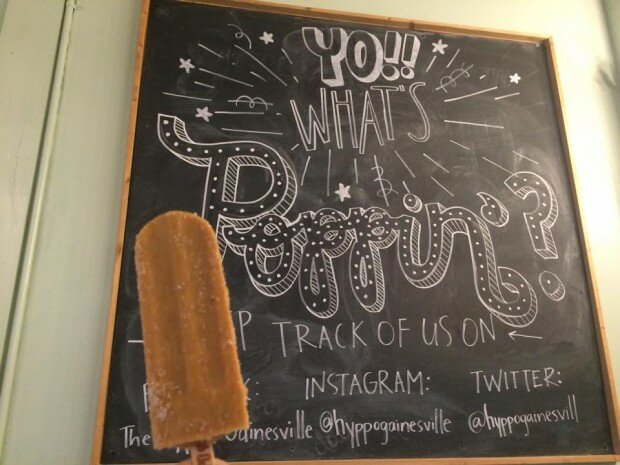 YO!!
WHAT'S
Poppin'?
TRACK OF US ON
INSTAGRAM: TWITTER:
The Gainesville @hyppogainesville @hyppogainesvill